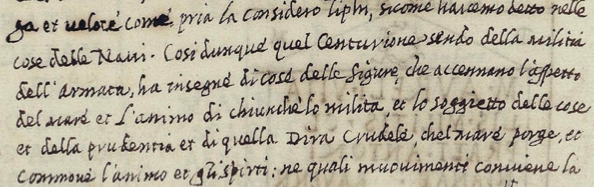 ga et veloce come pria la considero tiphi, sicome havemo detto nelle
cose delle Navi. Cosi dunque quel Centurione sendo della militia
dell'Armata, ha insegne di cose delle figure, che accennano l'aspetto
del mare et l'animo di chiunche lo milita, et lo soggietto delle cose
et della prudentia et di quella Dira Crudele, chel mare porge, et
Commove l'animo et gli spirti: ne quali muovimenti conviene la